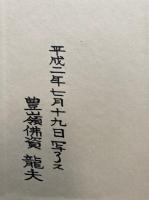 平成二年七月十九日写了ス
豊嶺佛資 龍夫